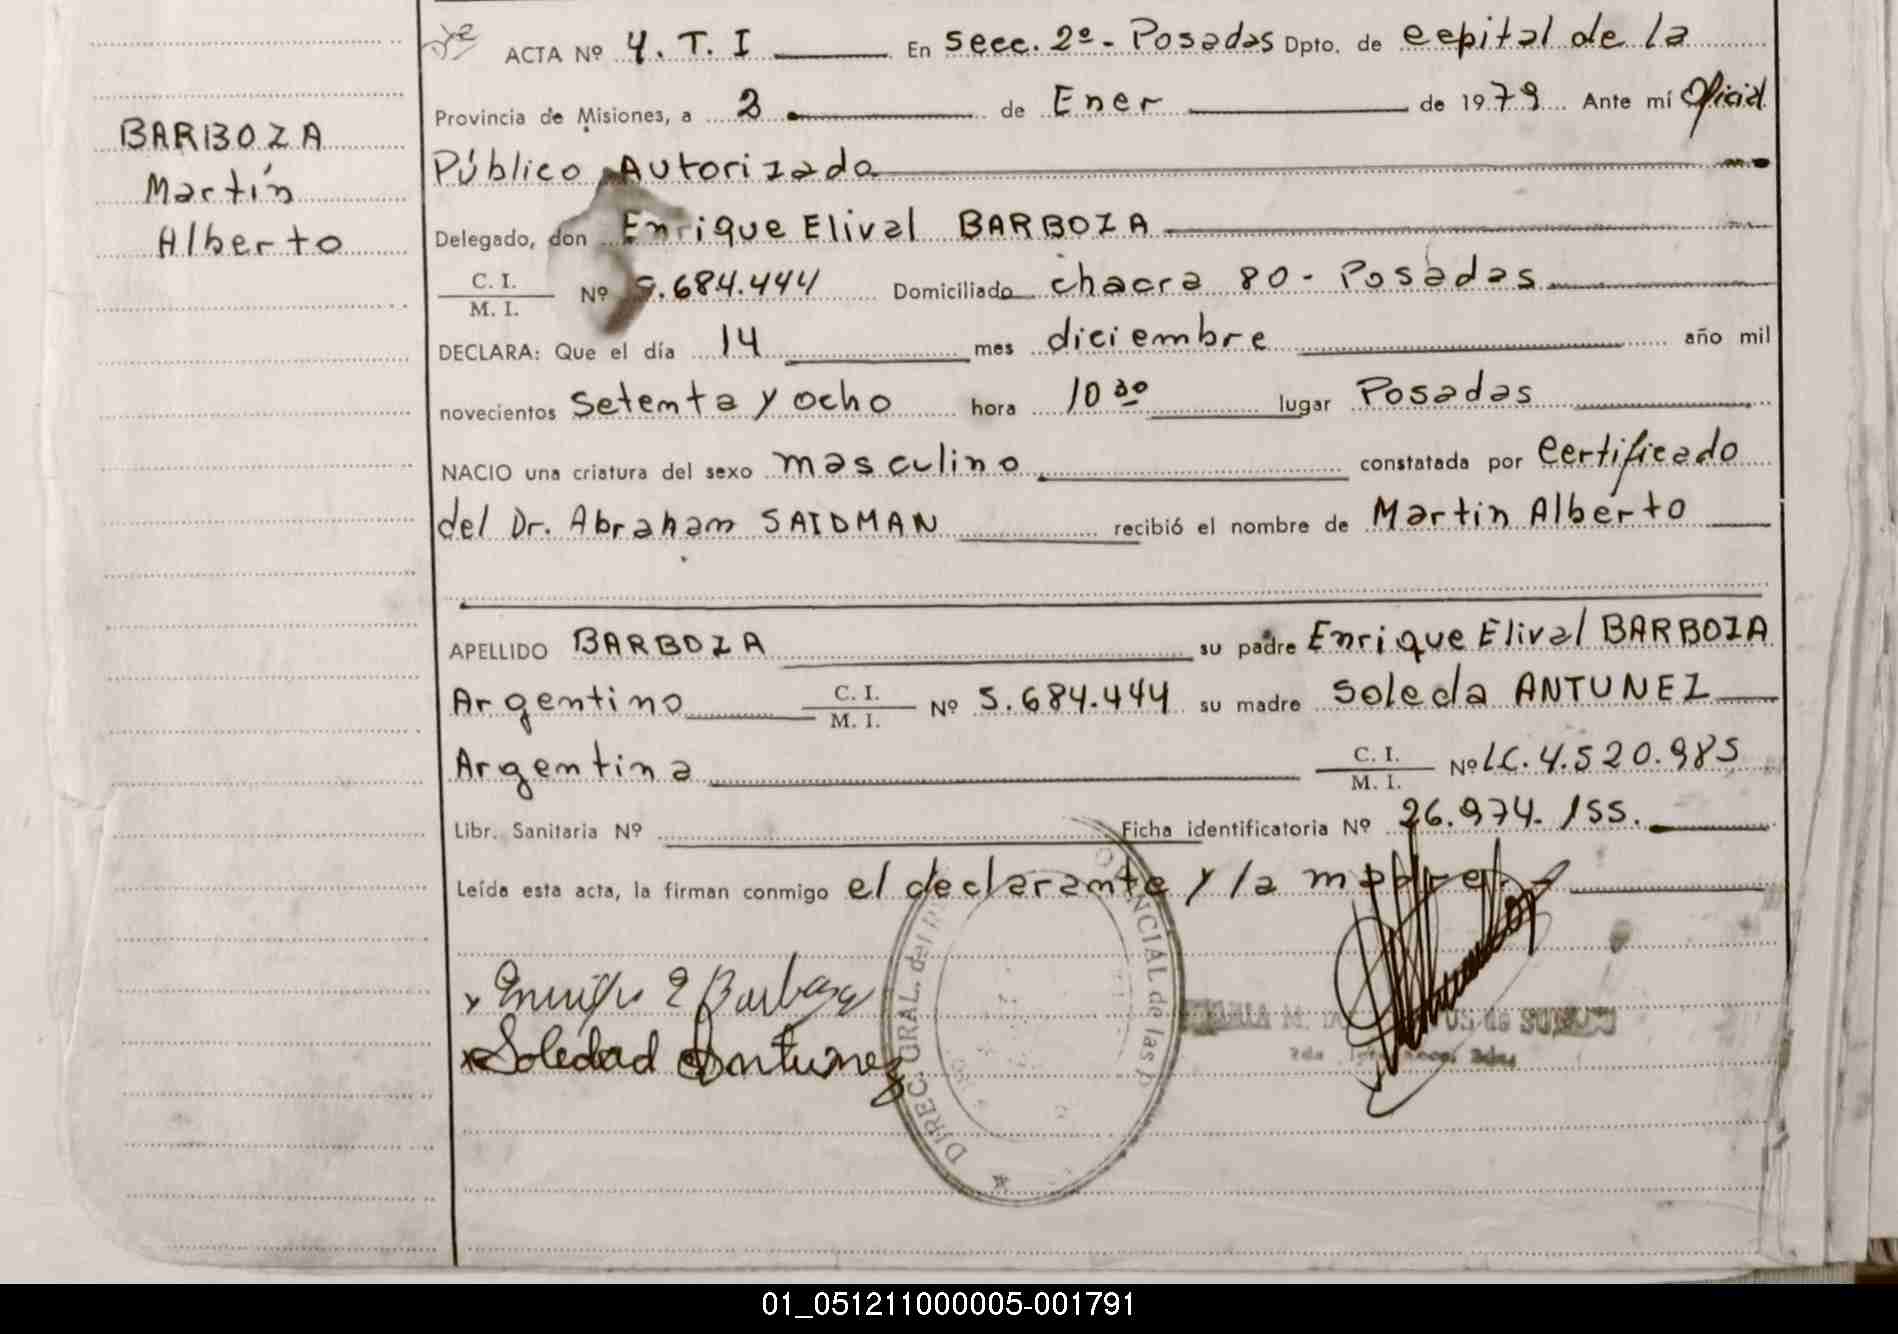 BARBOZA
Martín
Alberto
ACTA Nº 4. T. I En secc. 2º - Posadas Dpto. de capital de la
Provincia de Misiones, a 2 de Ener de 1979 Ante mí Oficial
Público Autorizado
Delegado, don Enrique Elival BARBOZA
C. I.
M. I. Nº 5.684.444 Domiciliado chacra 80 - Posadas
DECLARA: Que el día 14 mes diciembre año mil
novecientos setenta y ocho hora 10 30 lugar Posadas
NACIO una criatura del sexo masculino constatada por certificado
del Dr. Abraham SAIDMAN recibió el nombre de Martin Alberto
APELLIDO BARBOZA su padre Enrique Elival BARBOZA
Argentino C. I. M. I. Nº 5.684.444 su madre Soleda ANTUNEZ
Argentina C. I. M. I. Nº LC. 4.520.985
Libr. Sanitaria Nº Ficha identificatoria Nº 26.974. /SS.
Leída esta acta, la firman conmigo el declarante y la madre
x Enrique E Barboza
x Soledad Antunez
DIREC. GRAL. del
de las
01_051211000005-001791